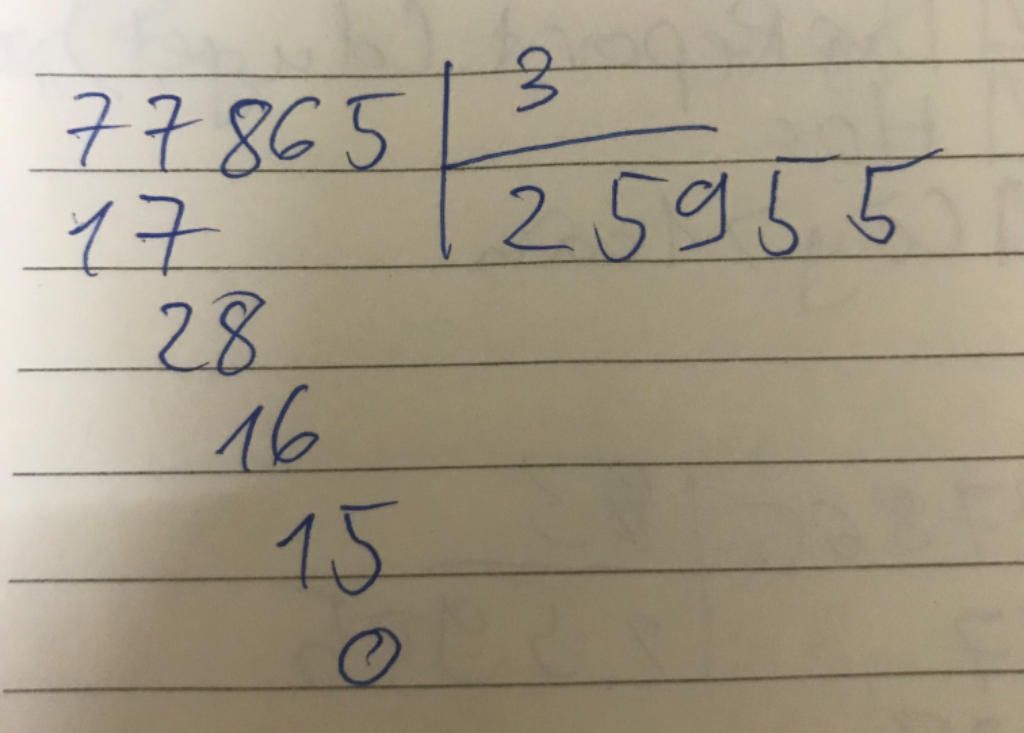 77865 3
17 25955
28
16
15
0